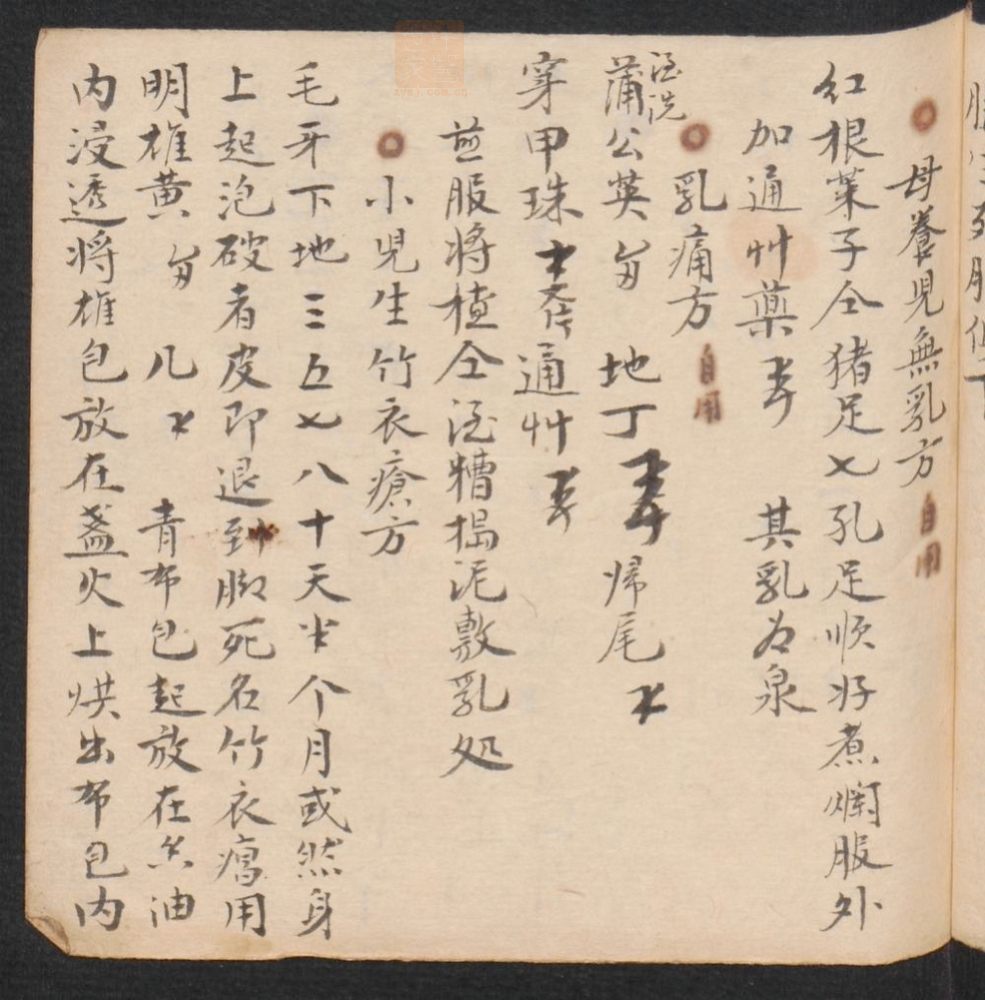 母養児無乳方 自用
紅根菜子仝猪足七孔足順好煮爛服外
加通艸藥 其乳如泉
乳痛方 自用
酒洗
蒲公英 地丁 帰尾
穿甲珠 通艸
煎服將楂仝酒糟搗泥敷乳处
小児生竹衣瘡方
毛牙下地三五七八十天半个月或然身
上起泡破者皮即退到脚死名竹衣瘍用
明雄黄 几 青布包起放在香油
内浸透将雄包放在盏火上烘出布包内